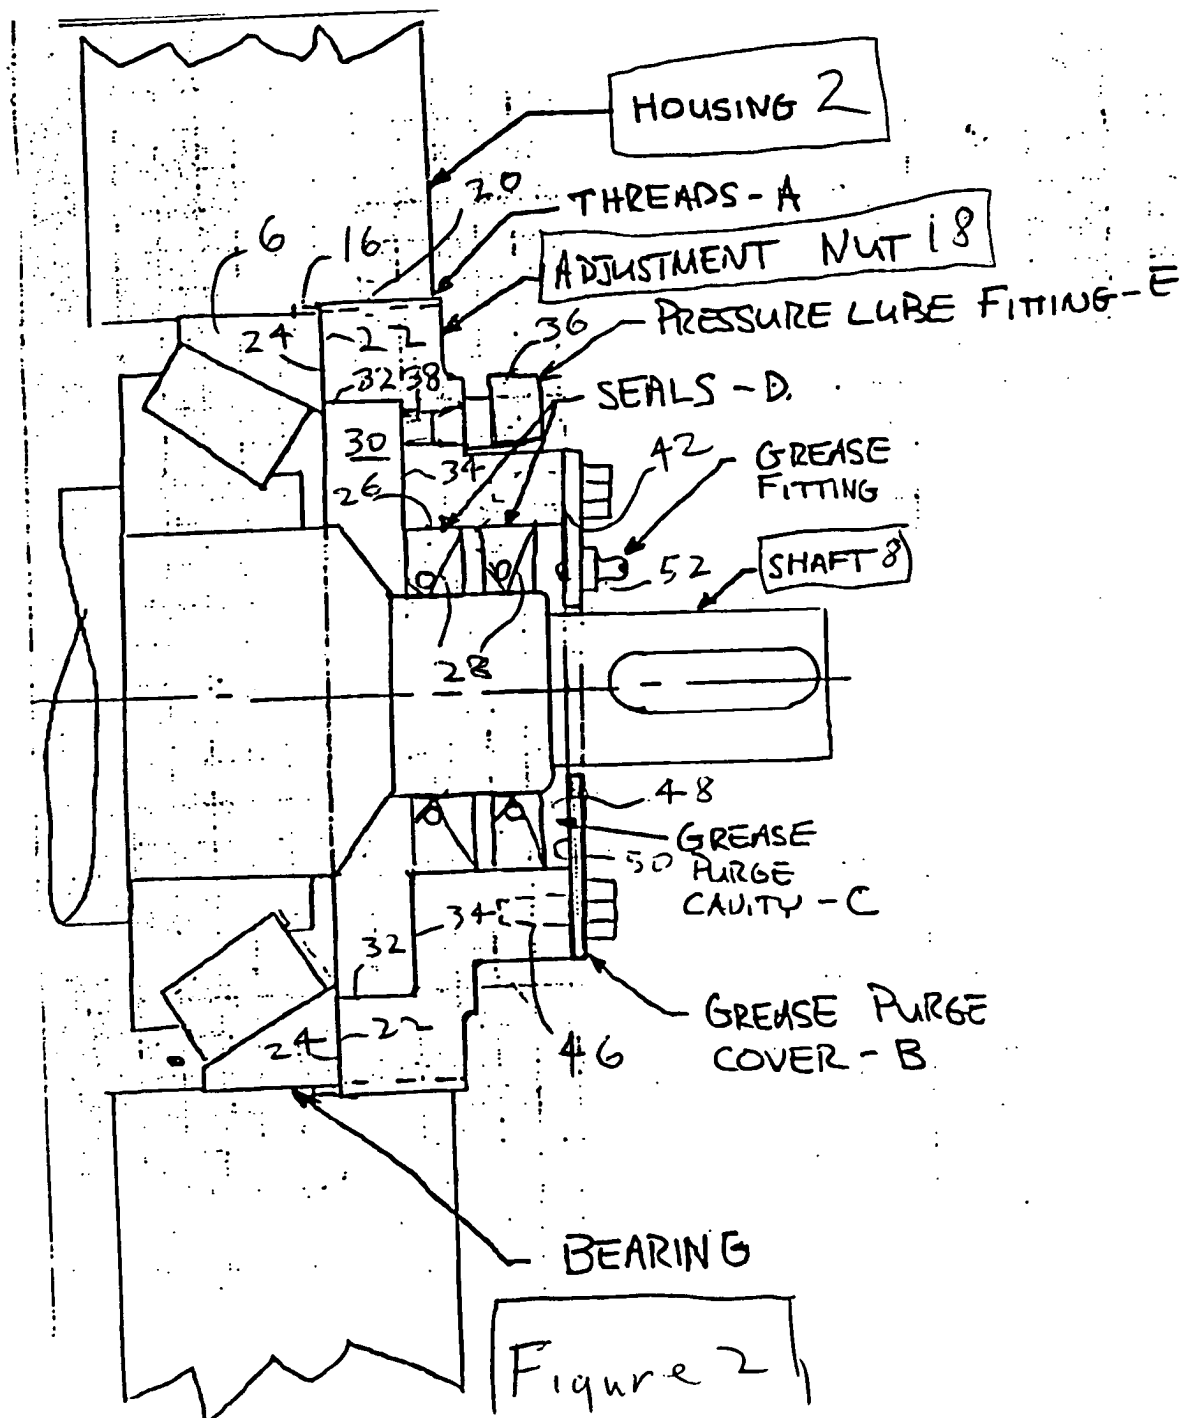 HOUSING 2
20
THREADS - A
6
16
ADJUSTMENT NUT 18
36
PRESSURE LUBE FITTING - E
24
22
32
38
SEALS - D.
30
34
42
GREASE
FITTING
26
52
SHAFT 8
28
48
GREASE
PURGE
CAVITY - C
50
34
32
GREASE PURGE
COVER - B
24
22
46
BEARING
Figure 2